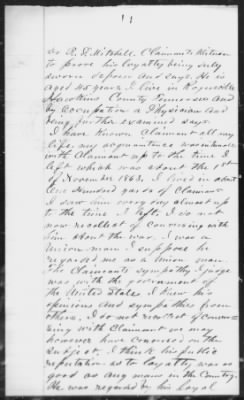 11
Dr R. D. Mitchell Claimants Witness
to prove his loyalty being duly
sworn deposes and says. He is
aged 45 years I live in Rogersville
Hawkins County Tennessee and
by Occupation a Physician and
being further examined says.
I have known Claimant all my
life my acquaintance was intimate
with Claimant up to the time I
left which was about the 1st
of November 1863. I lived in about
One Hundred yards of Claimant
I saw him every day almost up
to the time I left, I do not
now recollect of conversing with
him about the war. I was a
Union man I suppose he
regarded me as a Union man.
The Claimants sympathy I judge
was with the government of
the United States I knew his
opinions and sympathies from
others, I do not recollect of conver-
sing with Claimant we may
however have conversed on the
subject. I think his public
reputation as to loyalty was as
good as any man in the County.
He was regarded by his loyal